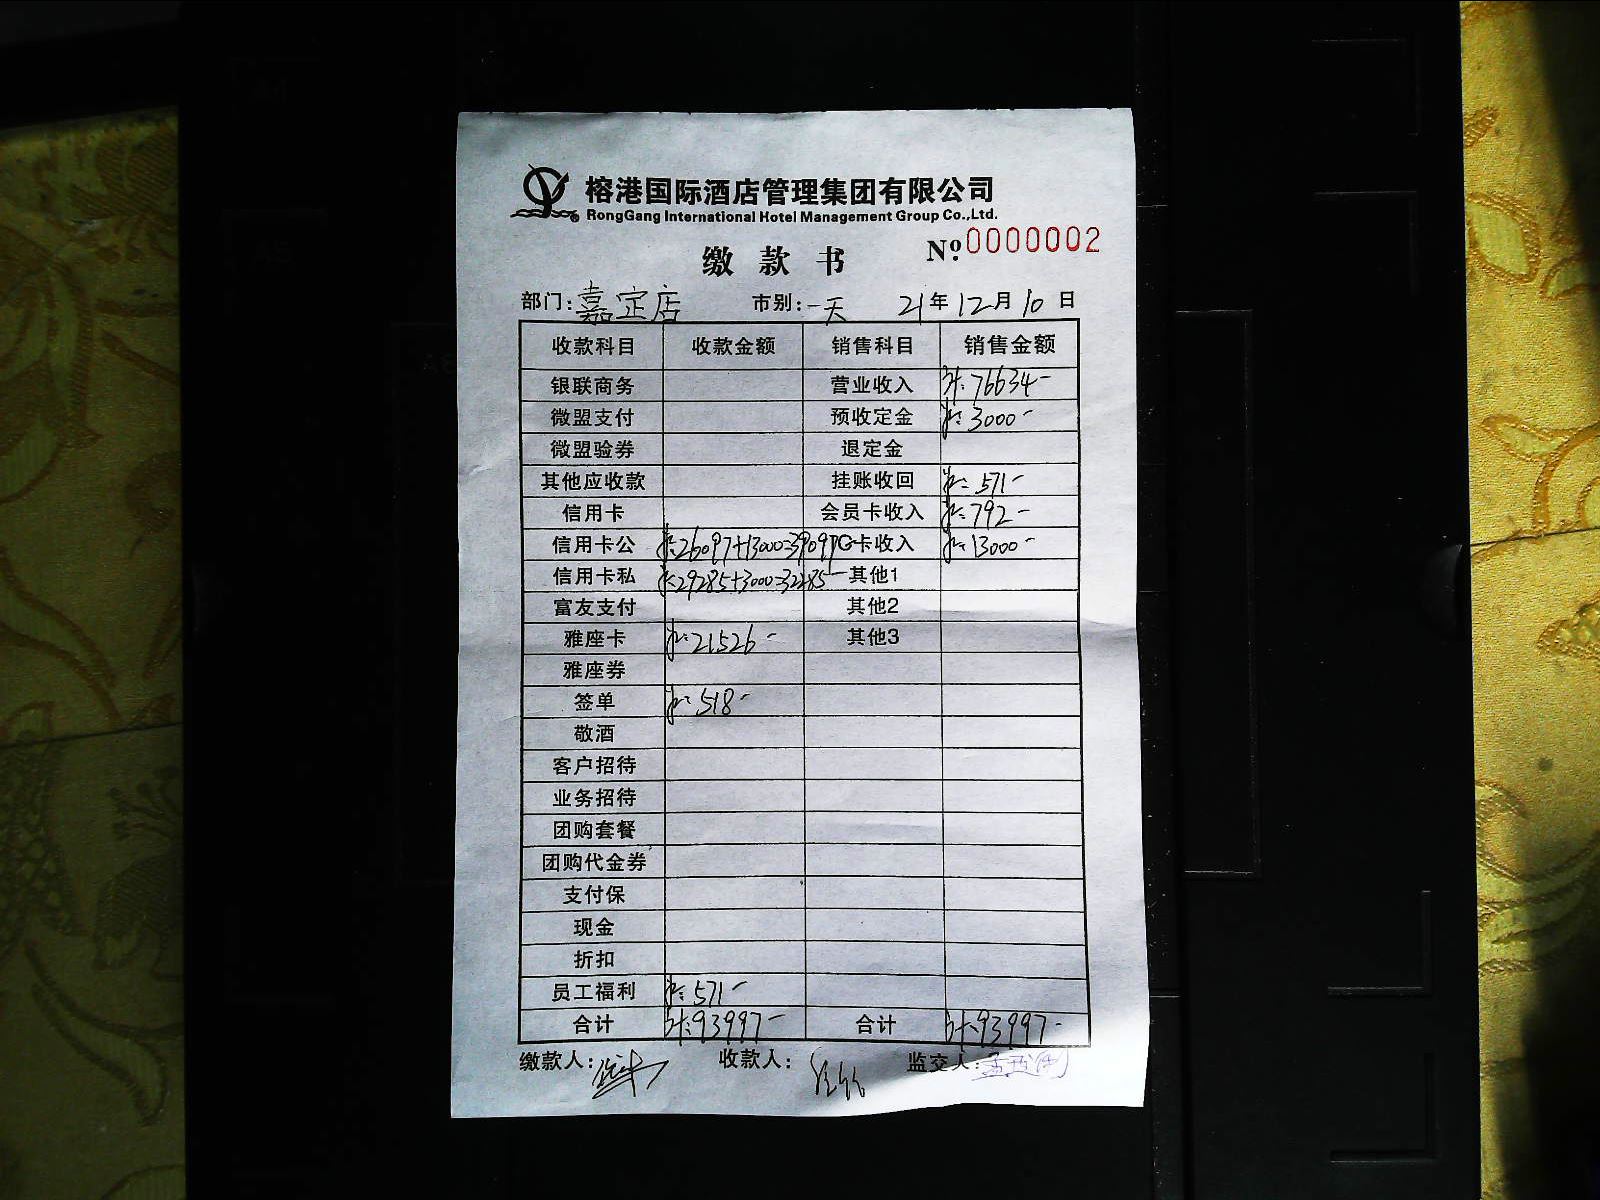 榕港国际酒店管理集团有限公司
RongGang International Hotel Management Group Co.,Ltd.
缴款书 Nº.0000002
部门:嘉定店 市别:一天 21年12月10日
收款科目 收款金额 销售科目 销售金额
银联商务 营业收入 计:76634-
微盟支付 预收定金 3000-
微盟验券 退定金
其他应收款 挂账收回 571-
信用卡 会员卡收入 792-
信用卡公 26097+13000=39097 卡收入 13000-
信用卡私 29285+3000=32285- 其他1
富友支付 其他2
雅座卡 21526- 其他3
雅座券
签单 518-
敬酒
客户招待
业务招待
团购套餐
团购代金券
支付保
现金
折扣
员工福利 571-
合计 计:93997- 合计 计:93997-
缴款人: 收款人: 监交人: